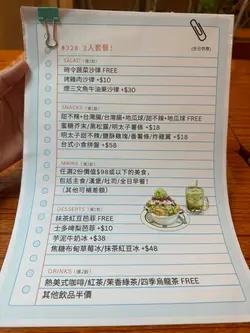 $328 2人套餐!
(全日供應)
SALAD (選1款)
時令蔬菜沙律 FREE
烤雞沙律 +$10
煙三文魚牛油果沙律 +$30
SNACKS (選1款)
甜不辣+台灣腸/台灣腸+地瓜球/甜不辣+地瓜球 FREE
蜜糖芥末/黑松露/明太子薯條 +$18
明太子甜不辣/鹽酥雞塊/番薯條/炸雞翼 +$18
台式小食拼盤 +$58
MAINS (選2款)
任選2份價值$98或以下的美食，
包括主食/漢堡/吐司/全日早餐!
(其他可補差額)
DESSERTS (選1款)
抹茶紅豆芭菲 FREE
士多啤梨芭菲 +$10
芋泥牛奶冰 +$38
焦糖布甸草莓冰/抹茶紅豆冰 +$48
DRINKS (選2款)
熱美式咖啡/紅茶/茉香綠茶/四季烏龍茶 FREE
其他飲品半價